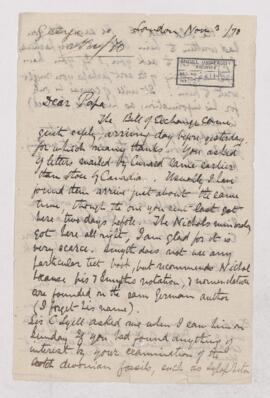 George
London Nov 3 /70
McGILL UNIVERSITY ARCHIVES
Dear Papa
The Bill of Exchange came
quite safely, arriving day before yesterday
for which many thanks. You asked
if letters mailed by Cunard came earlier
than those by Canadian. Usually I have
found them arrive just about the same
time, though the one you sent last got
here two days before. The Nicholls mineralogy
got here all right. I am glad for it is
very scarce. Smyth does not use any
particular text book, but recommends Nichol
because his & Smyths notation, & nomenclature
are founded on the same German author
(I forget his name).
Sir C Lyell asked me when I saw him on
Sunday if you had found anything of
interest by your examination of the
devonian fossils, such as